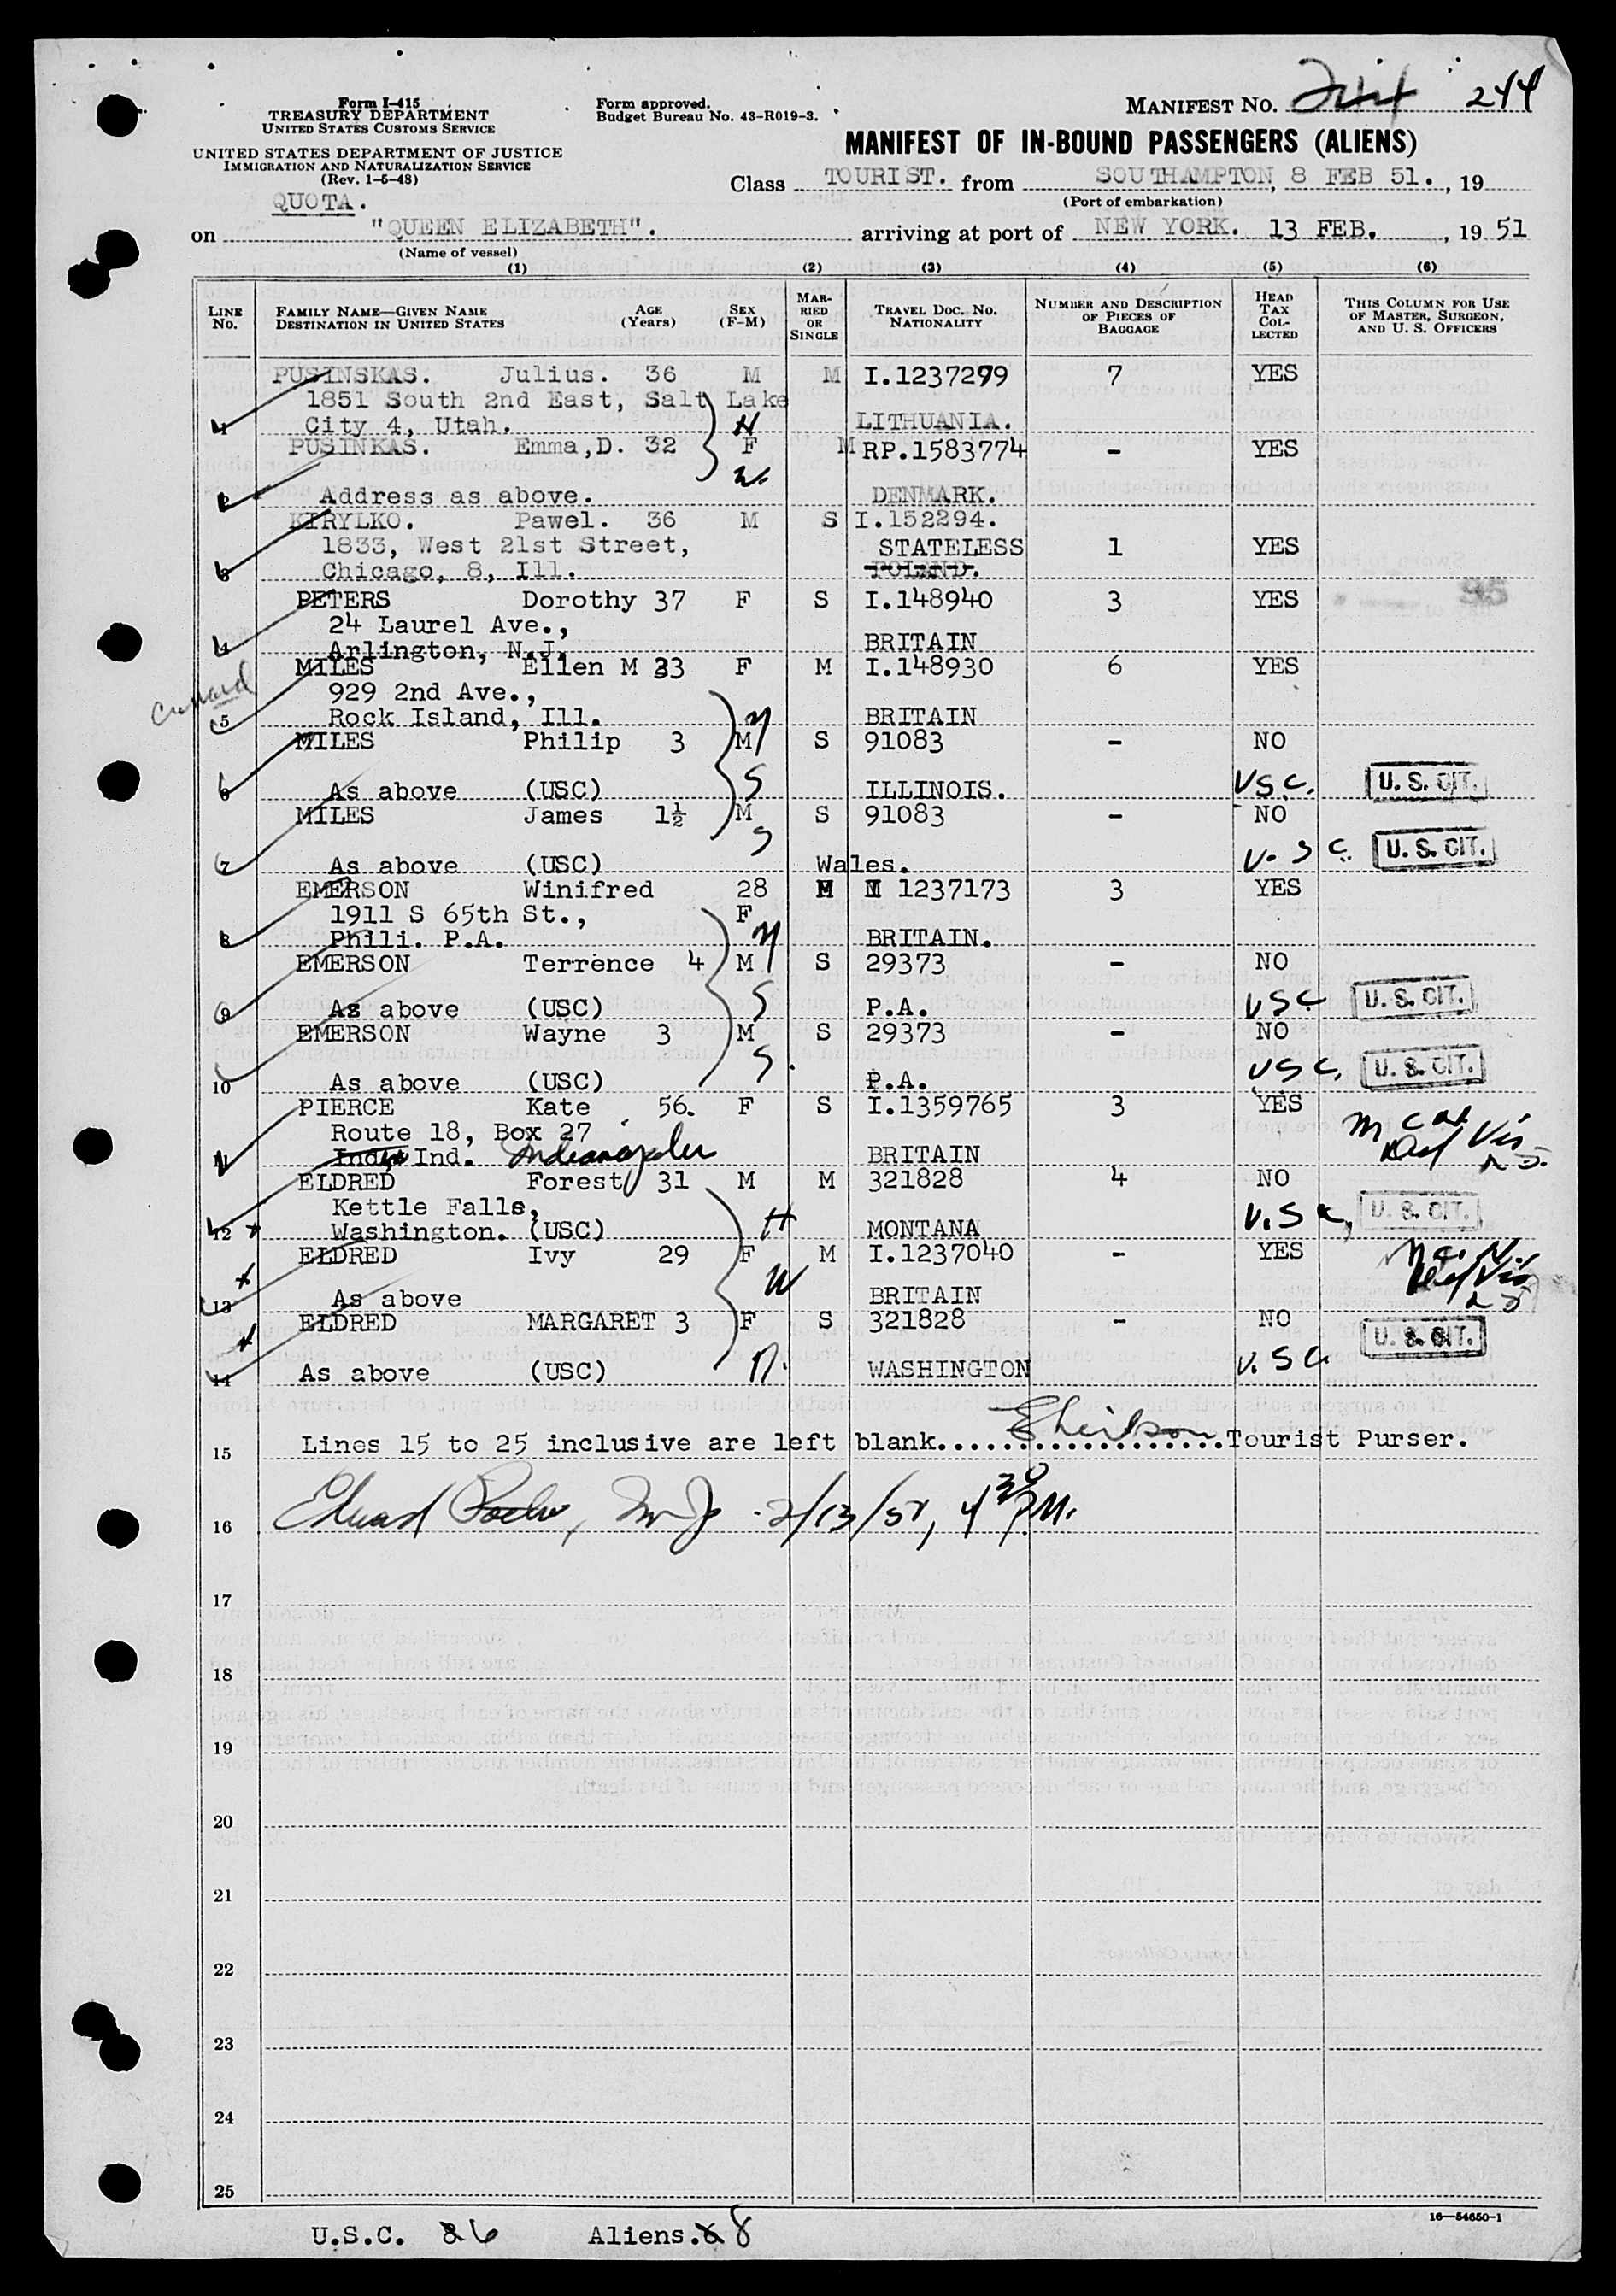 Form I-415
TREASURY DEPARTMENT
UNITED STATES CUSTOMS SERVICE
UNITED STATES DEPARTMENT OF JUSTICE
IMMIGRATION AND NATURALIZATION SERVICE
(Rev. 1-5-48)
QUOTA.
Form approved.
Budget Bureau No. 43-R019-3.
MANIFEST NO. 244
MANIFEST OF IN-BOUND PASSENGERS (ALIENS)
Class TOURIST. from SOUTHAMPTON, 8 FEB 51. , 19
(Port of embarkation)
on "QUEEN ELIZABETH". arriving at port of NEW YORK. 13 FEB. , 19 51
(Name of vessel)
(1) (2) (3) (4) (5) (6)
LINE No. FAMILY NAME—GIVEN NAME DESTINATION IN UNITED STATES AGE (Years) SEX (F-M) MARRIED OR SINGLE TRAVEL DOC. NO. NATIONALITY NUMBER AND DESCRIPTION OF PIECES OF BAGGAGE HEAD TAX COLLECTED THIS COLUMN FOR USE OF MASTER, SURGEON, AND U. S. OFFICERS
PUSINSKAS. Julius. 36 M M I.1237299 7 YES
1851 South 2nd East, Salt Lake
1 City 4, Utah. H LITHUANIA.
PUSINKAS. Emma,D. 32 F M RP.1583774 - YES
W.
2 Address as above. DENMARK.
KIRYLKO. Pawel. 36 M S I.152294.
1833, West 21st Street, STATELESS 1 YES
3 Chicago, 8, Ill. POLAND.
PETERS Dorothy 37 F S I.148940 3 YES 95
24 Laurel Ave.,
4 Arlington, N.J. BRITAIN
MILES Ellen M 33 F M I.148930 6 YES
Cunard 929 2nd Ave.,
5 Rock Island, Ill. M BRITAIN
MILES Philip 3 M S 91083 - NO
6 As above (USC) S ILLINOIS. USC. U. S. CIT.
MILES James 1½ M S 91083 - NO
S
7 As above (USC) Wales. U. S C. U. S. CIT.
EMERSON Winifred 28 M I 1237173 3 YES
1911 S 65th St., F
8 Phili. P.A. M BRITAIN.
EMERSON Terrence 4 M S 29373 - NO
9 As above (USC) S P.A. USC U. S. CIT.
EMERSON Wayne 3 M S 29373 - NO
10 As above (USC) S. P.A. USC, U. S. CIT.
PIERCE Kate 56. F S I.1359765 3 YES
Route 18, Box 27
11 Ind. Indianapolis BRITAIN
ELDRED Forest 31 M M 321828 4 NO
Kettle Falls,
12 Washington. (USC) H MONTANA U.S C, U. S. CIT.
ELDRED Ivy 29 F M I.1237040 - YES
W
13 As above BRITAIN
ELDRED MARGARET 3 F S 321828 - NO U. S. CIT.
14 As above (USC) D. WASHINGTON U. S C.
15 Lines 15 to 25 inclusive are left blank...................Tourist Purser.
16 2/13/51, 4 30 P.M.
17
18
19
20
21
22
23
24
25
16—54650-1
U.S.C. 8 6 Aliens. 6 8